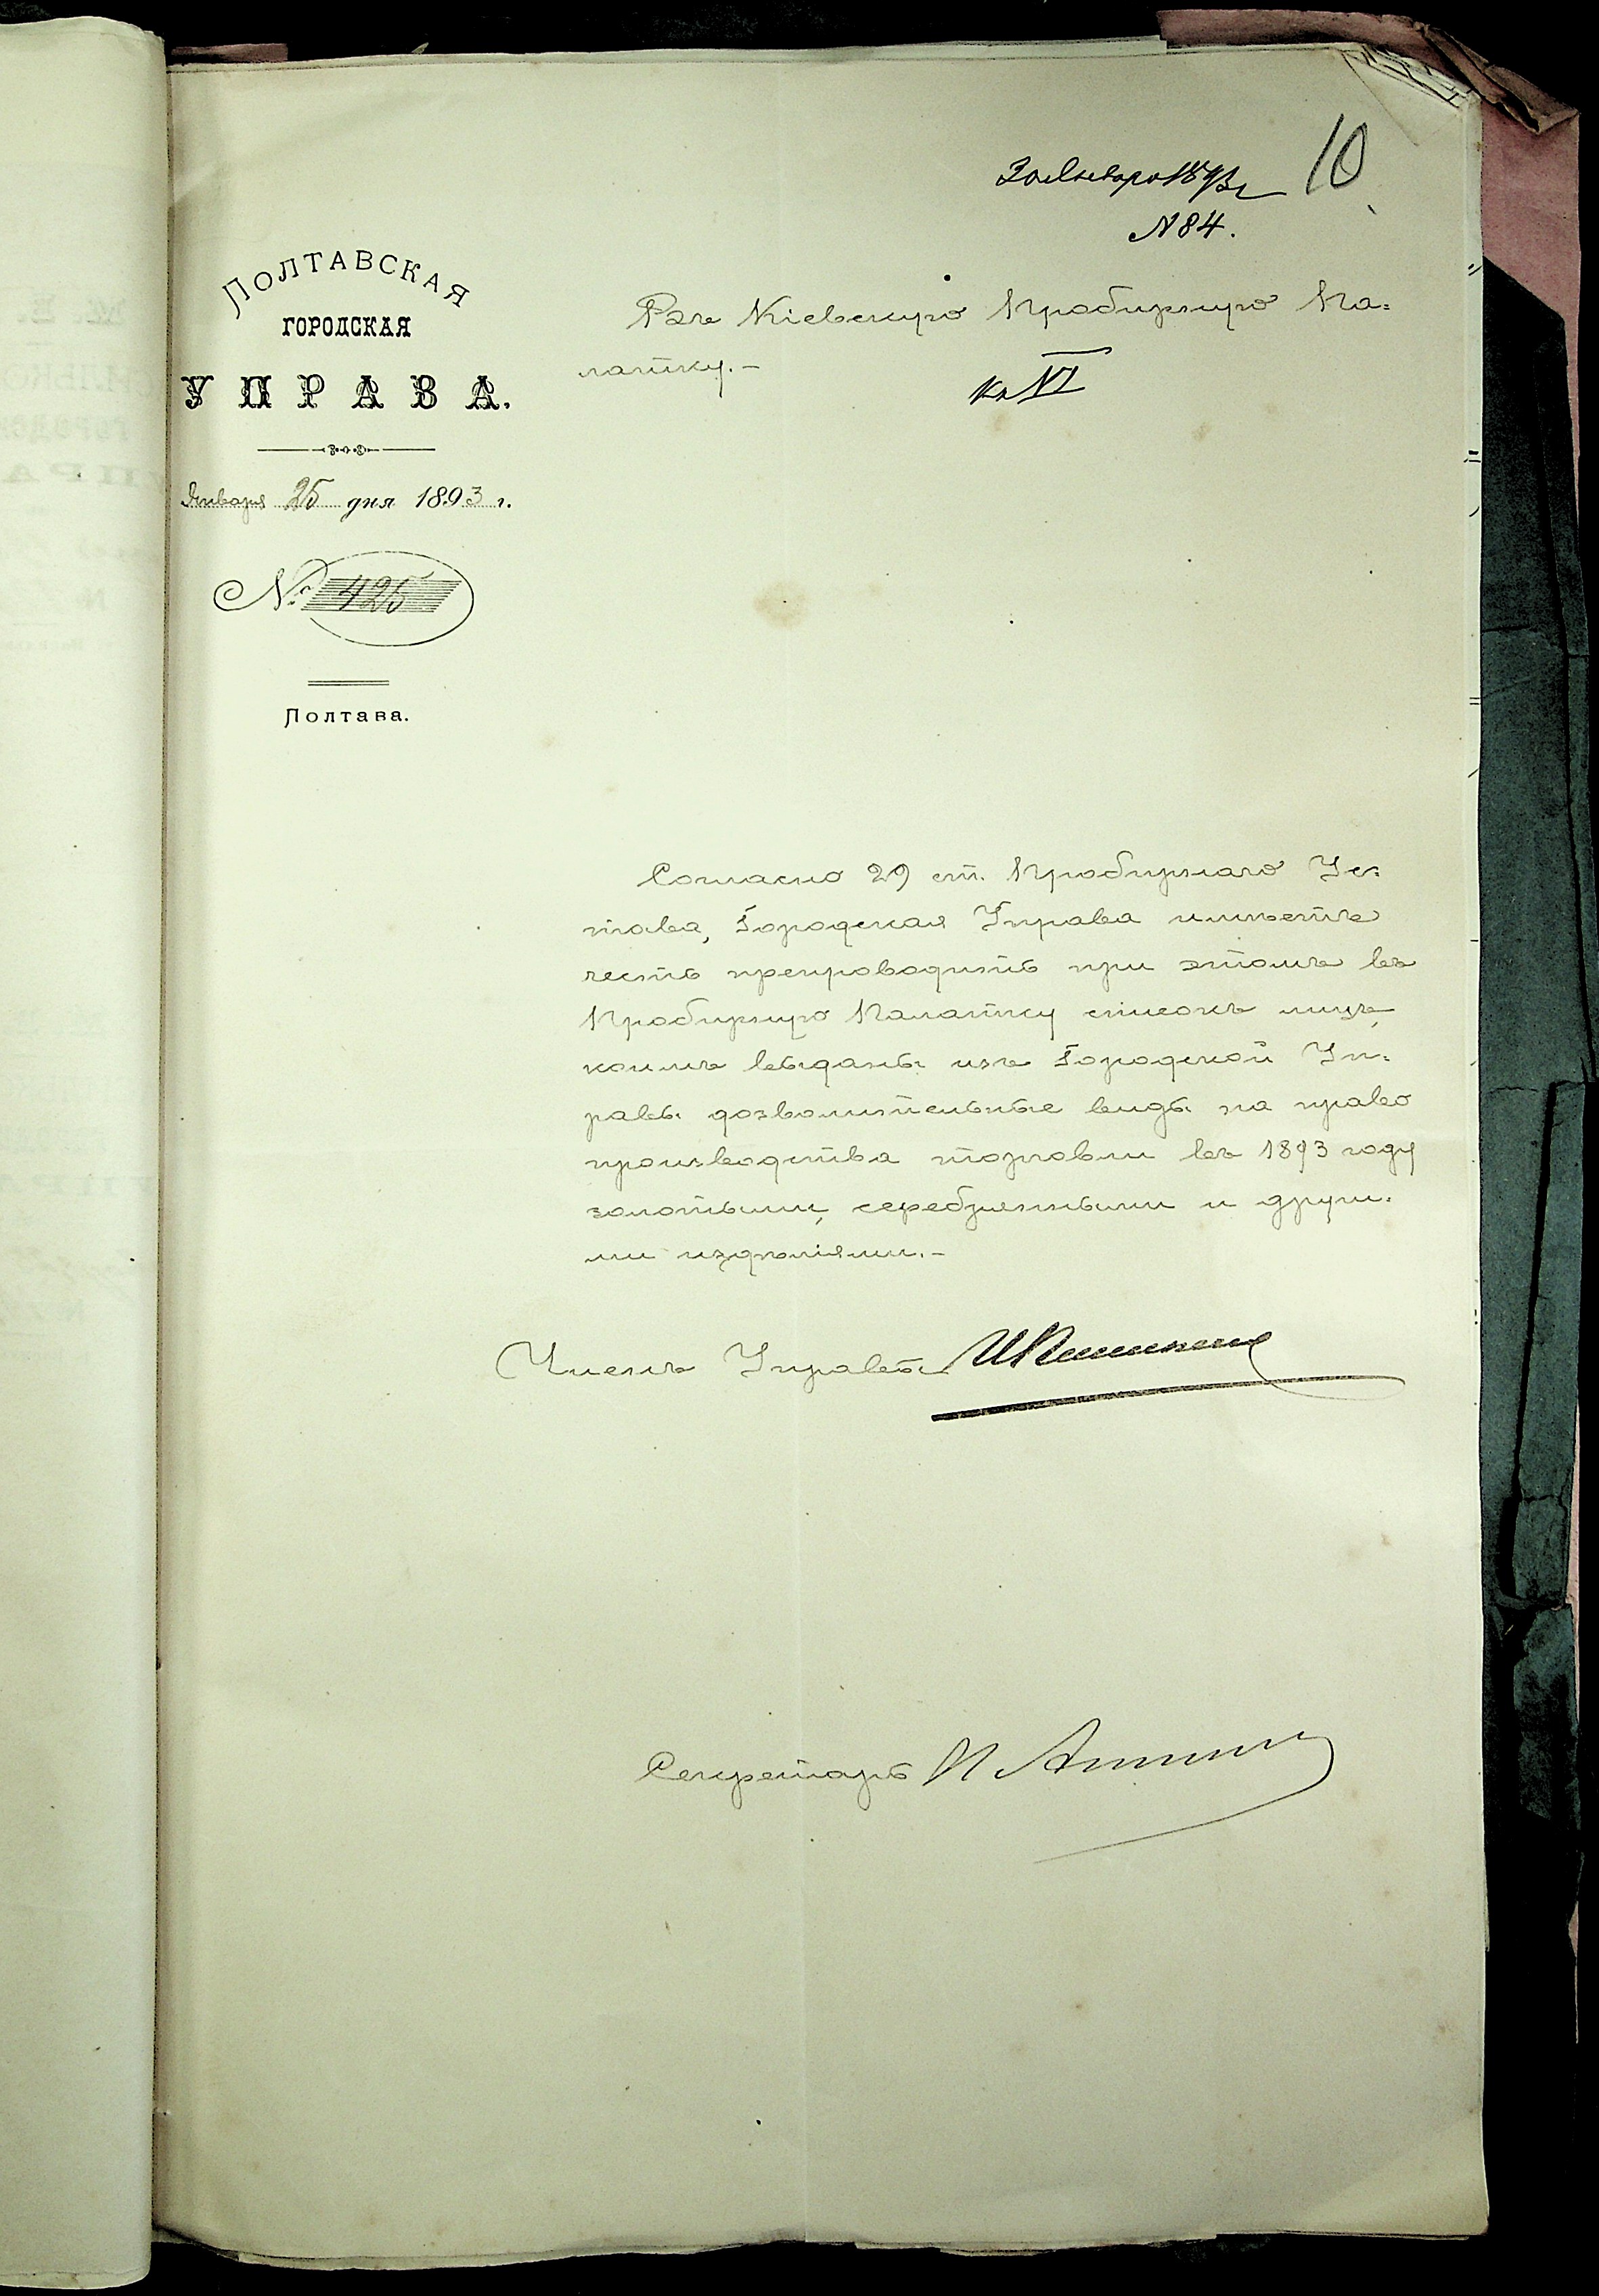 30 Января 1893 г
10
№ 84.
ПОЛТАВСКАЯ
ГОРОДСКАЯ
УПРАВА.
Января 25 дня 1893 г.
№ 425
Полтава.
Въ Кіевскую Пробирную Па=
латку.-
къ VI
Согласно 29 ст. Пробирнаго Ус=
тава, Городская Управа имѣетъ
честь препроводить при этомъ въ
Пробирную Палатку списокъ лицъ,
коимъ выданы изъ Городской Уп=
равы дозволительные виды на право
производства торговли въ 1893 году
золотыми, серебряными и други=
ми издѣліями.-
Членъ Управы
Секретарь